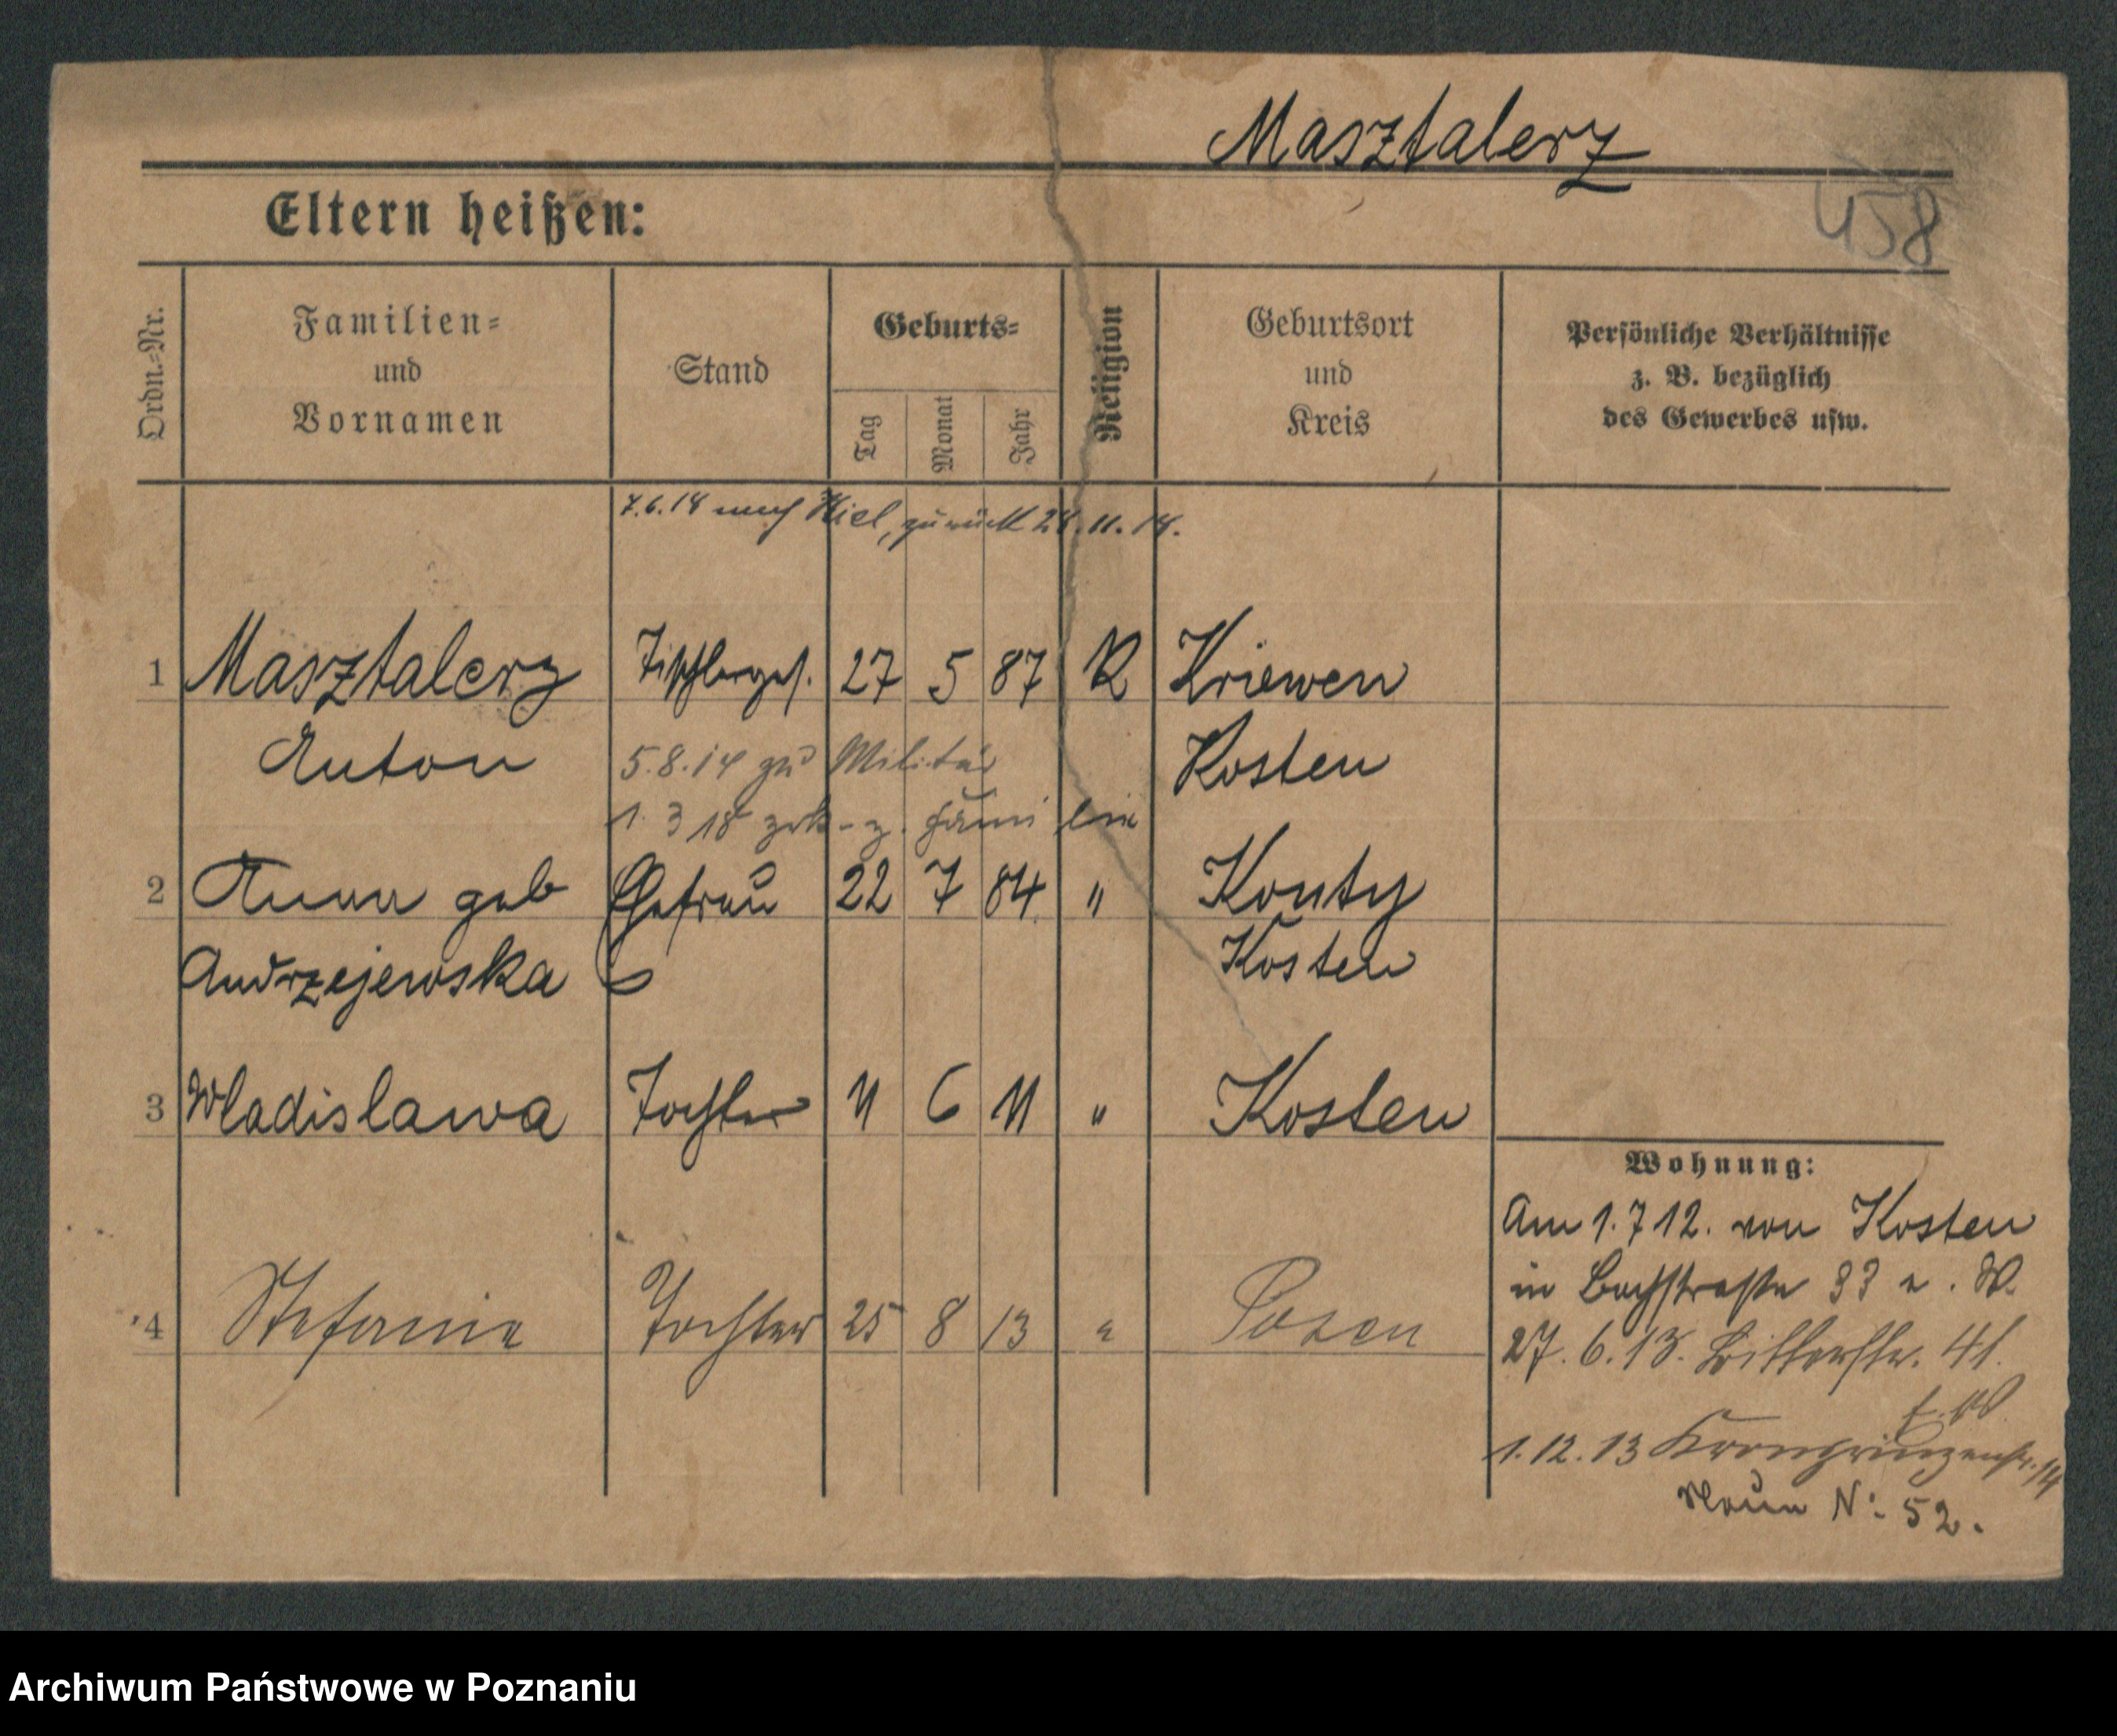 Masztalerz
458
Eltern heißen:
Ordn.-Nr.
Familien-
und
Vornamen
Stand
Geburts-
Tag
Monat
Jahr
Religion
Geburtsort
und
Kreis
Persönliche Verhältnisse
z. B. bezüglich
des Gewerbes usw.
7.6.14 nach Kiel, zurück 24.11.14.
1 Masztalerz Tischlerges. 27 5 87 K Kriewen
Anton Kosten
5.8.14 zu Militär
1. 3 18 zrk - z. Fami lie
2 Anna geb Ehefrau 22 7 84 " Konty
Andrzejewska Kosten
3 Wladislawa Tochter 11 6 11 " Kosten
4 Stefania Tochter 25 8 13 " Posen
Wohnung:
Am 1.7 12. von Kosten
in Bachstraße 33 e. W.
27.6.13. Bitterstr. 41.
1.12.13 Kronprinzenstr. 14
Neun N: 52.
Archiwum Państwowe w Poznaniu